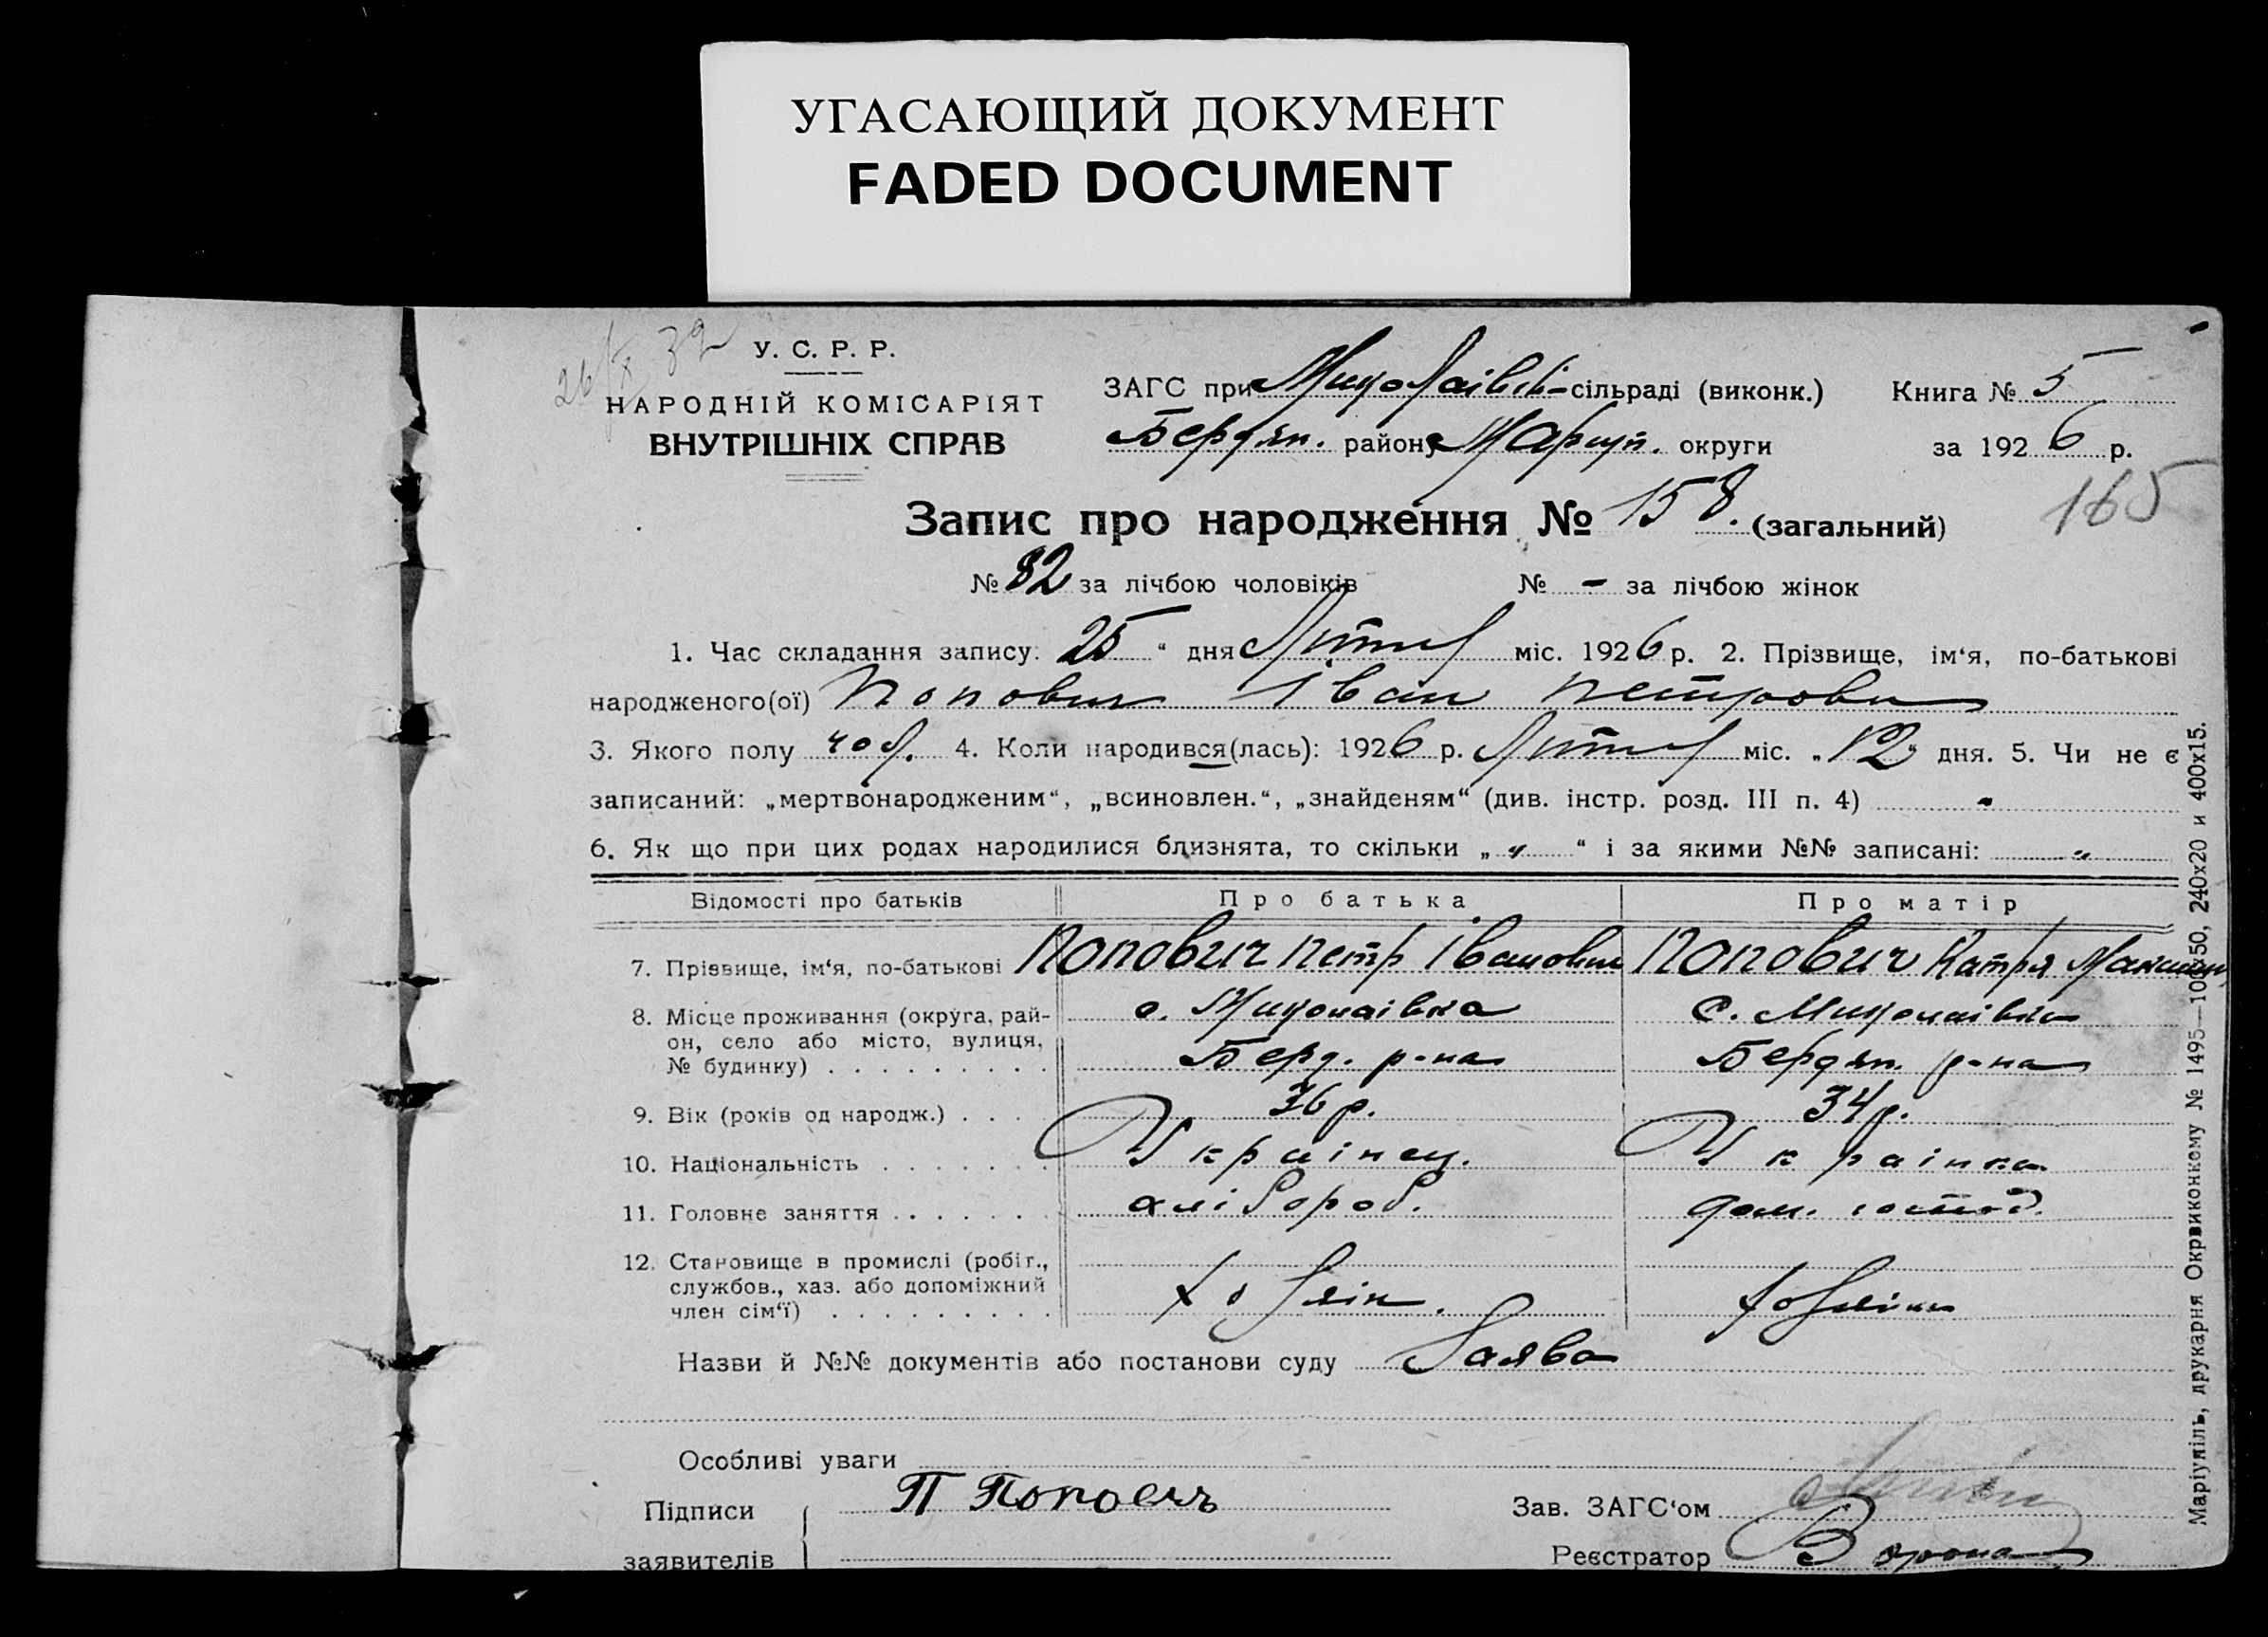 УГАСАЮЩИЙ ДОКУМЕНТ
FADED DOCUMENT
26/X 39
У. С. Р. Р.
НАРОДНІЙ КОМІСАРІЯТ
ВНУТРІШНІХ СПРАВ
ЗАГС при Миколаівській-сільраді (виконк.) Книга № 5
Бердян. району Маріуп. округи за 1926 р.
165
Запис про народження № 158. (загальний)
№ 82 за лічбою чоловіків № - за лічбою жінок
1. Час складання запису: 25 " дня Лютого міс. 1926 р. 2. Прізвище, ім‘я, по-батькові
народженого(ої) Попович Іван Петрович
3. Якого полу чол. 4. Коли народився(лась): 1926 р. Лютого міс. „12" дня. 5. Чи не є
записаний: „мертвонародженим“, „всиновлен.“, „знайденям“ (див. інстр. розд. III п. 4) "
6. Як що при цих родах народилися близнята, то скільки „ " “ і за якими №№ записані: "
Відомості про батьків Про батька Про матір
7. Прізвище, ім‘я, по-батькові Попович Петр Іванович Попович Катря Максим
8. Місце проживання (округа, рай-
он, село або місто, вулиця,
№ будинку) . . . . . . . . .
с. Миколаівка
Берд. р-на
с. Миколаівка
Бердян. р-на
9. Вік (років од народж.) . . . 36 р. 34 р.
10. Національність . . . . . . . Украінец. Украінка
11. Головне заняття . . . . . . . хлібороб. дом. господ.
12. Становище в промислі (робіт.,
службов., хаз. або допоміжний
член сім‘ї) . . . . . . . . .
Хозяін. Хозяінка
Назви й №№ документів або постанови суду Заява
Особливі уваги
Підписи П Попович Зав. ЗАГС‘ом
заявителів Реєстратор Ворона
Маріупіль, друкарня Окрвиконкому № 1495—100х50, 240х20 и 400х15.